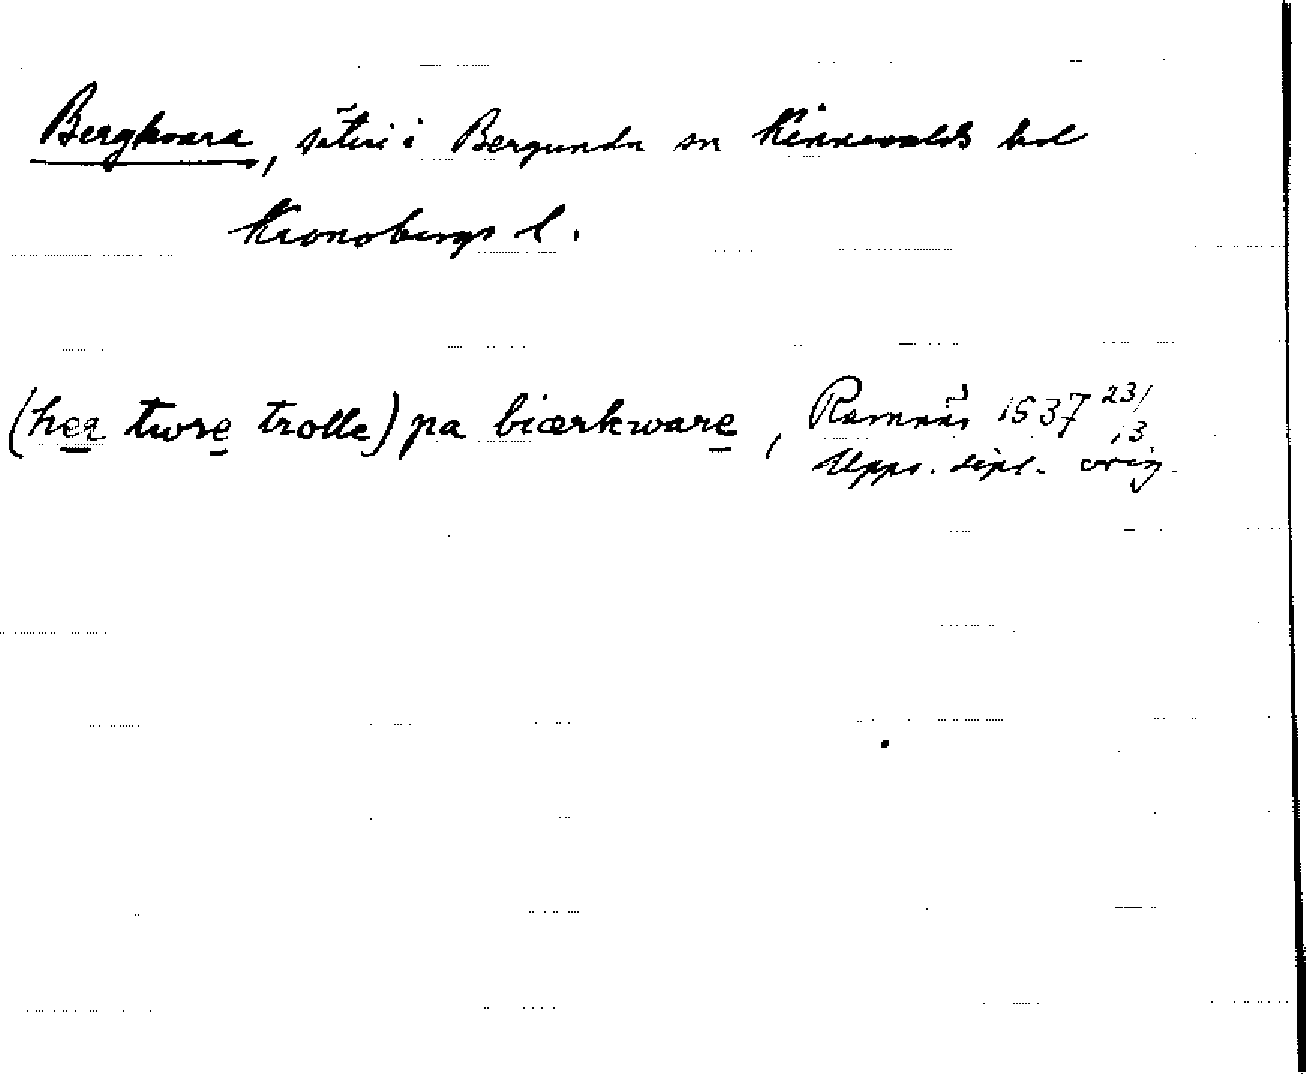 Bergkvara, säteri i Bergunda sn Kinnevalds hd
Kronobergs l.
(her twre trolle) pa biærkware, Ramnäs 1537 23/3.
Upps. dipl. orig.